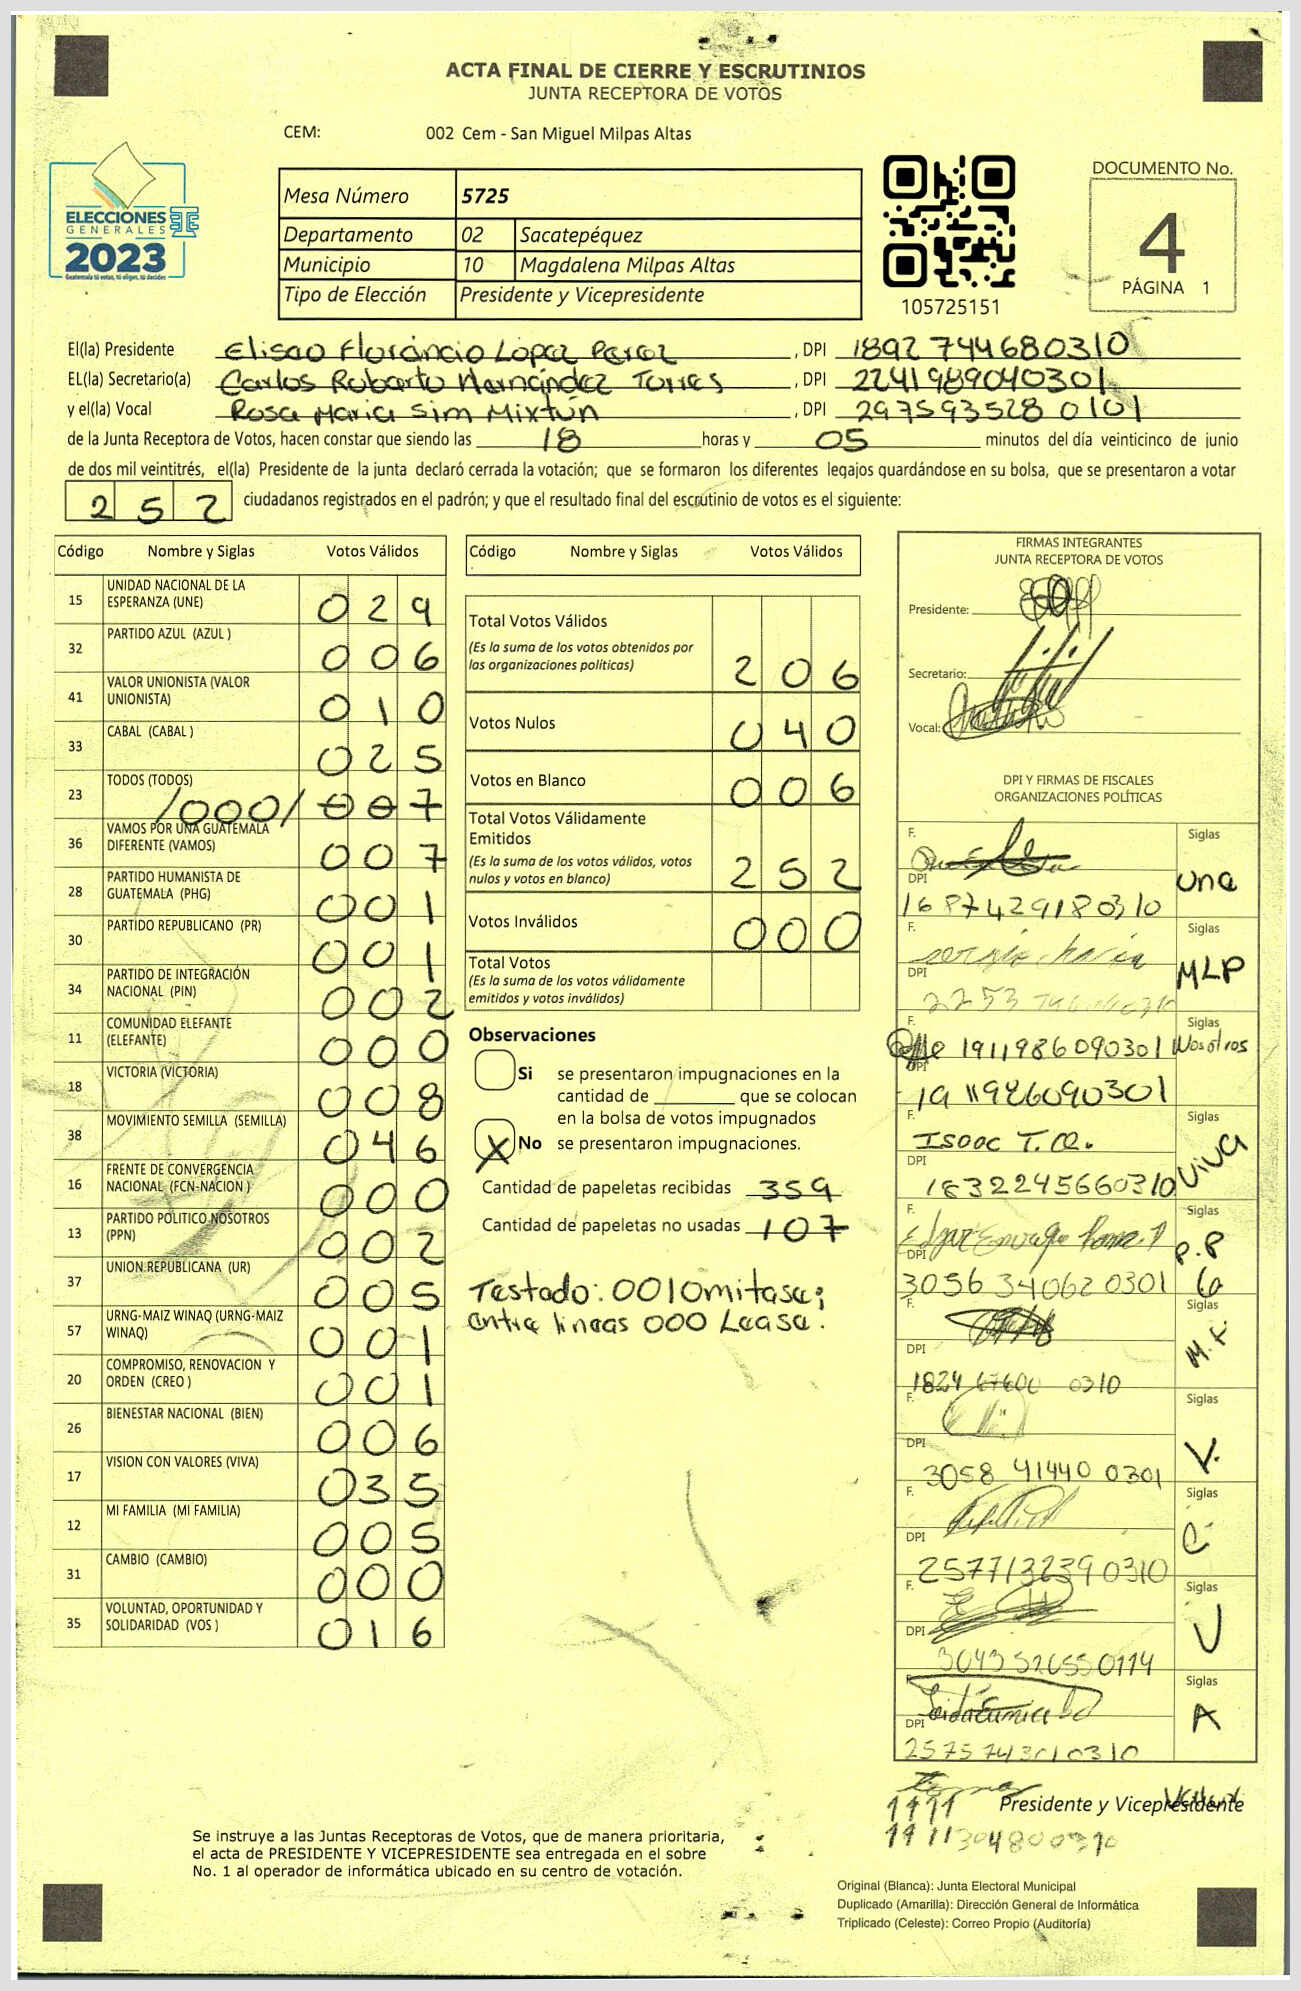 ACTA FINAL DE CIERRE Y ESCRUTINIOS
JUNTA RECEPTORA DE VOTOS
CEM: 002 Cem - San Miguel Milpas Altas
ELECCIONES
GENERALES
2023
Guatemala tú votas, tú eliges, tú decides
Mesa Número 5725
Departamento 02 Sacatepéquez
Municipio 10 Magdalena Milpas Altas
Tipo de Elección Presidente y Vicepresidente
105725151
DOCUMENTO No.
4
PÁGINA 1
El(la) Presidente Eliseo Florencio López Perez , DPI 1892 744680310
EL(la) Secretario(a) Carlos Roberto Hernández Torres , DPI 2241989040301
y el(la) Vocal Rosa Maria Sim Mixtún , DPI 297593528 0101
de la Junta Receptora de Votos, hacen constar que siendo las 18 horas y 05 minutos del día veinticinco de junio
de dos mil veintitrés, el(la) Presidente de la junta declaró cerrada la votación; que se formaron los diferentes legajos guardándose en su bolsa, que se presentaron a votar
252 ciudadanos registrados en el padrón; y que el resultado final del escrutinio de votos es el siguiente:
Código Nombre y Siglas Votos Válidos
15 UNIDAD NACIONAL DE LA ESPERANZA (UNE) 029
32 PARTIDO AZUL (AZUL ) 006
41 VALOR UNIONISTA (VALOR UNIONISTA) 010
33 CABAL (CABAL ) 025
23 TODOS (TODOS) /000/ 007
36 VAMOS POR UNA GUATEMALA DIFERENTE (VAMOS) 007
28 PARTIDO HUMANISTA DE GUATEMALA (PHG) 001
30 PARTIDO REPUBLICANO (PR) 001
34 PARTIDO DE INTEGRACIÓN NACIONAL (PIN) 002
11 COMUNIDAD ELEFANTE (ELEFANTE) 000
18 VICTORIA (VICTORIA) 008
38 MOVIMIENTO SEMILLA (SEMILLA) 046
16 FRENTE DE CONVERGENCIA NACIONAL (FCN-NACION ) 000
13 PARTIDO POLITICO NOSOTROS (PPN) 002
37 UNION REPUBLICANA (UR) 005
57 URNG-MAIZ WINAQ (URNG-MAIZ WINAQ) 001
20 COMPROMISO, RENOVACION Y ORDEN (CREO ) 001
26 BIENESTAR NACIONAL (BIEN) 006
17 VISION CON VALORES (VIVA) 035
12 MI FAMILIA (MI FAMILIA) 005
31 CAMBIO (CAMBIO) 000
35 VOLUNTAD, OPORTUNIDAD Y SOLIDARIDAD (VOS ) 016
Código Nombre y Siglas Votos Válidos
Total Votos Válidos
(Es la suma de los votos obtenidos por
las organizaciones políticas) 206
Votos Nulos 040
Votos en Blanco 006
Total Votos Válidamente
Emitidos
(Es la suma de los votos válidos, votos
nulos y votos en blanco) 252
Votos Inválidos 000
Total Votos
(Es la suma de los votos válidamente
emitidos y votos inválidos)
Observaciones
Si se presentaron impugnaciones en la
cantidad de que se colocan
en la bolsa de votos impugnados
X No se presentaron impugnaciones.
Cantidad de papeletas recibidas 359
Cantidad de papeletas no usadas 107
Testado: 0010mitase;
entre lineas 000 Lease.
FIRMAS INTEGRANTES
JUNTA RECEPTORA DE VOTOS
Presidente:
Secretario:
Vocal:
DPI Y FIRMAS DE FISCALES
ORGANIZACIONES POLÍTICAS
F. Siglas
DPI une
1687429180310
F. Siglas
DPI MLP
2253
F. Siglas
1911986090301 Nosotros
DPI
1911986090301
F. Siglas
Isaac T. Q.
DPI VIVA
1832245660310
F. Siglas
Edgar Enrique
DPI P.P
3056 340620301
F. Siglas
DPI M.F.
1824 67600 0310
F. Siglas
DPI V.
3058 41440 0301
F. Siglas
DPI C
2577132390310
F. Siglas
DPI U
3043526550114
F. Siglas
DPI A
2575743010310
1111 Presidente y Vicepresidente
1911304800310
Se instruye a las Juntas Receptoras de Votos, que de manera prioritaria,
el acta de PRESIDENTE Y VICEPRESIDENTE sea entregada en el sobre
No. 1 al operador de informática ubicado en su centro de votación.
Original (Blanca): Junta Electoral Municipal
Duplicado (Amarilla): Dirección General de Informática
Triplicado (Celeste): Correo Propio (Auditoría)